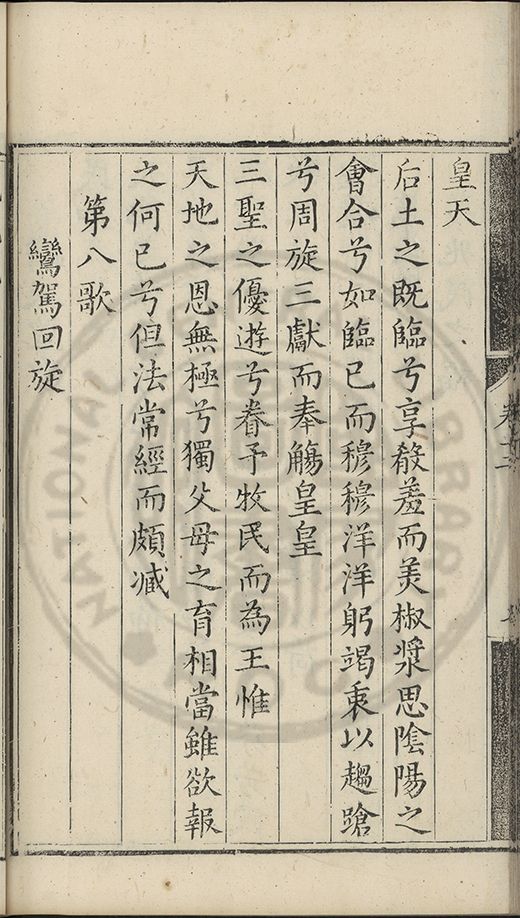 皇天
后土之既臨兮享殽羞而羙椒漿思陰陽之
會合兮如臨已而穆穆洋洋躬竭衷以趨蹌
兮周旋三獻而奉觴皇皇
三聖之優遊兮眷予牧民而為王惟
天地之恩無極兮獨父母之育相當雖欲報
之何已兮但法常經而頗臧
第八歌
鸞駕回旋